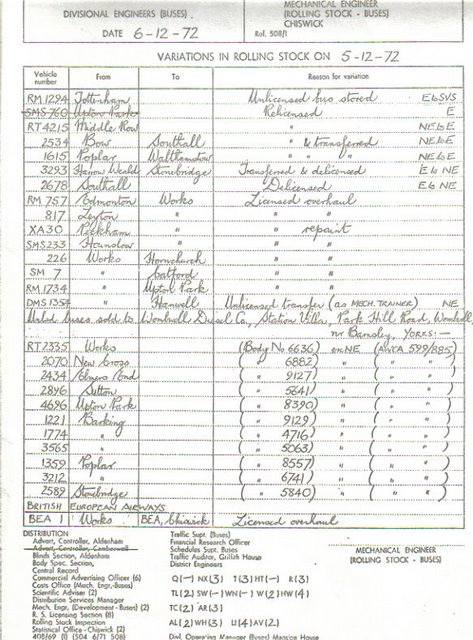 DIVISIONAL ENGINEERS (BUSES)
MECHANICAL ENGINEER
(ROLLING STOCK - BUSES)
CHISWICK
DATE 6-12-72
Ref. 508/1
VARIATIONS IN ROLLING STOCK ON 5-12-72
Vehicle number From To Reason for variation
RM1294 Tottenham Unlicensed bus stored E6SVS
SMS760 Upton Park Relicensed E
RT4215 Middle Row " NELE
2534 Bow Southall " & transferred NELE
1615 Poplar Walthamstow " " NELE
3293 Harrow Weald Stonebridge Transferred & delicensed E6 NE
2678 Southall Delicensed E6 NE
RM757 Edmonton Works Licensed overhaul
817 Leyton " " "
XA30 Peckham " " repaint
SMS233 Hounslow " " "
226 Works Hornchurch " "
SM 7 " Catford " "
RM1734 " Upton Park " "
DMS1354 " Hanwell Unlicensed transfer (as MECH. TRAINER) NE
Unlcd buses sold to Wombwell Diesel Co., Station Villa, Park Hill Road, Wombwell,
nr Barnsley, YORKS:-
RT2335 Works (Body No 6636) exNE (A/Ca 599/885)
2070 New Cross ( " 6882) " ( " " )
2434 Elmers End ( " 9127) " ( " " )
2896 Sutton ( " 5641) " ( " " )
4696 Upton Park ( " 8390) " ( " " )
1221 Barking ( " 9129) " ( " " )
1774 " ( " 4716) " ( " " )
3565 " ( " 5063) " ( " " )
1359 Poplar ( " 8557) " ( " " )
3212 " ( " 6741) " ( " " )
2589 Stonebridge ( " 5840) " ( " " )
BRITISH EUROPEAN AIRWAYS
BEA 1 Works BEA, Chiswick Licensed overhaul
DISTRIBUTION
Advert, Controller, Aldenham
Advert, Controller, Camberwell
Blinds Section, Aldenham
Body Spec. Section,
Central Record
Commercial Advertising Officer (6)
Costs Office (Mech. Engr.,Buses)
Scientific Adviser (2)
Distribution Services Manager
Mech. Engr, (Development - Buses) (2)
R. S. Licensing Section (8)
Rolling Stock Inspection
Statistical Office - Chiswick (2)
408/69 (1) 504 6/71 508)
Traffic Supt. (Buses)
Financial Research Officer
Schedules Supt. Buses
Traffic Auditor, Griffith House
District Engineers
Q(-) NX(3) T(3) HT(-) R(3)
TL(2) SW(-) WN(-) W(2) HW(4)
TC(2) AR(3)
AL(3) WH(3) U(4) AV(2)
Divl. Operating Manager (Buses) Mansion House
MECHANICAL ENGINEER
(ROLLING STOCK - BUSES)